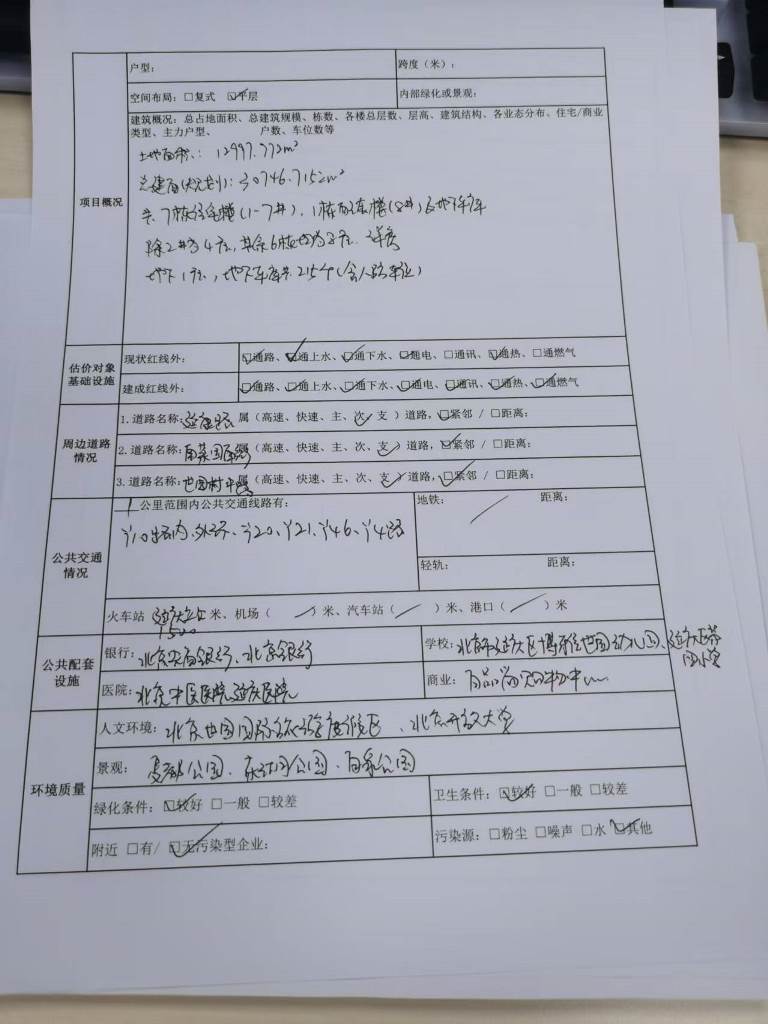 户型： 跨度（米）：
空间布局：□复式 ☑平层 内部绿化或景观：
项目概况
建筑概况：总占地面积、总建筑规模、栋数、各楼总层数、层高、建筑结构、各业态分布、住宅/商业
类型、主力户型、 户数、车位数等
土地面积：12997.772m²
总建面(规划)：30746.715m²
共7栋住宅楼(1-7#)，1栋配套楼(8#)及地下车库
除2#为4层，其余6栋均为8层
地下1层，地下车库共215个(含人防车位)
估价对象
基础设施
现状红线外： ☑通路、☑通上水、☑通下水、☑通电、□通讯、☑通热、□通燃气
建成红线外： ☑通路、☑通上水、☑通下水、☑通电、☑通讯、☑通热、☑通燃气
周边道路
情况
1.道路名称： 属（高速、快速、主、次、支）道路，☑紧邻 / □距离：
2.道路名称：南菜园 属（高速、快速、主、次、支）道路，☑紧邻 / □距离：
3.道路名称： 属（高速、快速、主、次、支）道路，☑紧邻 / □距离：
公共交通
情况
1公里范围内公共交通线路有： 地铁： 距离：
Y10内、外环、Y20、Y21、Y46、Y4路
轻轨： 距离：
火车站 延庆站 1500 米、机场（ / ）米、汽车站（ / ）米、港口（ / ）米
公共配套
设施
银行：北京农商银行、北京银行 学校：北京市延庆区 世园幼儿园、延庆区
医院：北京中医医院延庆医院 商业： 购物中心
环境质量
人文环境：北京世园国际 度假区、北京开放大学
景观：夏都公园、 公园、百泉公园
绿化条件：☑较好 □一般 □较差 卫生条件：☑较好 □一般 □较差
附近 □有/ ☑无污染型企业： 污染源：□粉尘 □噪声 □水 ☑其他